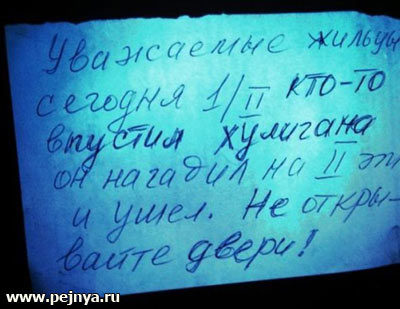 Уважаемые жильцы
сегодня 1/II кто-то
впустил хулигана
он нагадил на II эт
и ушел. Не откры-
вайте двери!
www.pejnya.ru